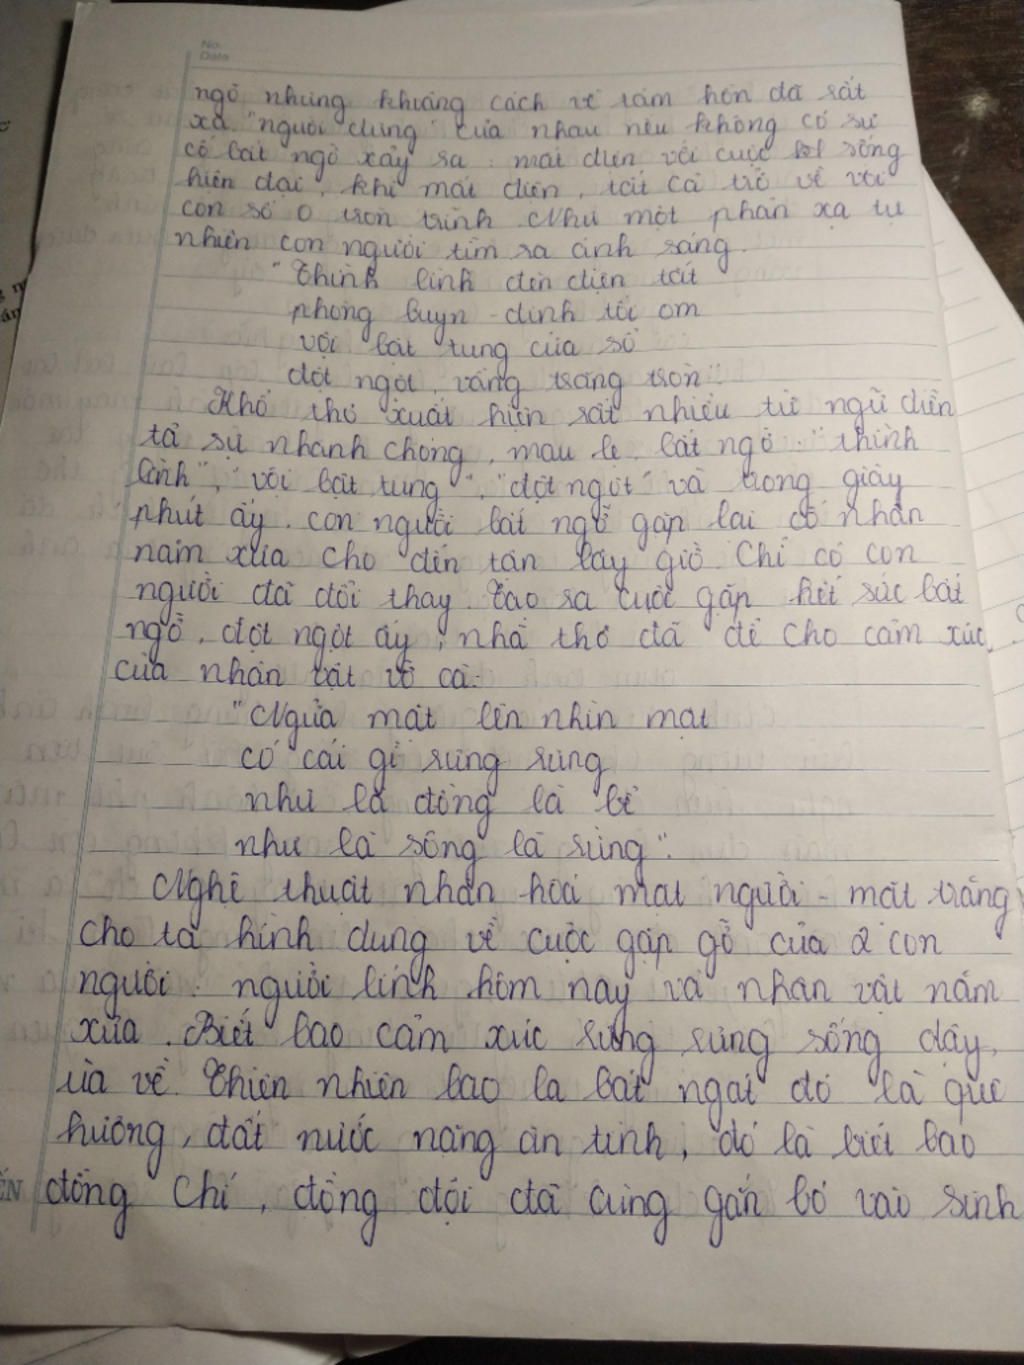 No.
Date
ngõ nhưng khoảng cách về tâm hồn đã rất
xa "người dưng" của nhau nếu không có sự
cố bất ngờ xảy ra: mất điện với cuộc sống
hiện đại, khi mất điện, tất cả trở về với
con số 0 tròn trĩnh. Như một phản xạ tự
nhiên con người tìm ra ánh sáng.
"Thình lình đèn điện tắt
phòng buyn-đinh tối om
vội bật tung cửa sổ
đột ngột, vầng trăng tròn".
Khổ thơ xuất hiện rất nhiều từ ngữ diễn
tả sự nhanh chóng, mau lẹ, bất ngờ: "thình
lình", "vội bật tung", "đột ngột" và trong giây
phút ấy, con người bất ngờ gặp lại cố nhân
năm xưa cho đến tận bây giờ. Chỉ có con
người đã đổi thay. Tạo ra cuộc gặp hết sức bất
ngờ, đột ngột ấy, nhà thơ đã để cho cảm xúc
của nhân vật vỡ oà:
"Ngửa mặt lên nhìn mặt
có cái gì rưng rưng
như là đồng là bể
như là sông là rừng".
Nghệ thuật nhân hoá mặt người - mặt trăng
cho ta hình dung về cuộc gặp gỡ của 2 con
người: người lính hôm nay và nhân vật năm
xưa. Biết bao cảm xúc rưng rưng sống dậy,
ùa về. Thiên nhiên bao la bát ngát đó là quê
hương, đất nước nặng ân tình, đó là biết bao
đồng chí, đồng đội đã cùng gắn bó vào sinh